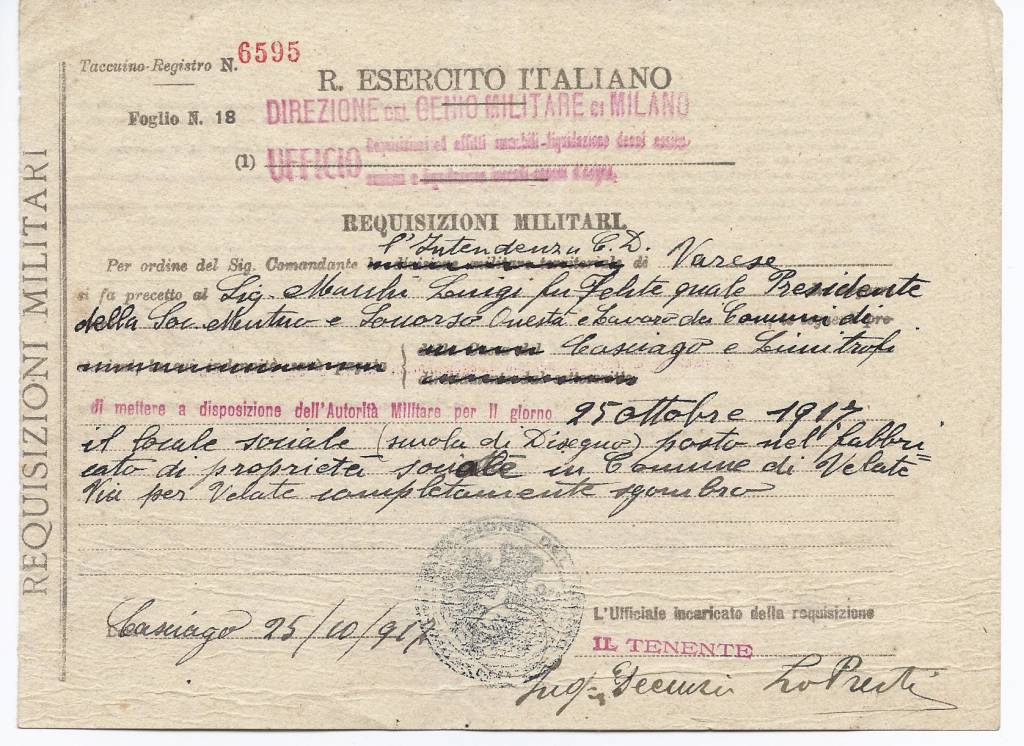 REQUISIZIONI MILITARI
Taccuino-Registro N. 6595
R. ESERCITO ITALIANO
DIREZIONE DEL GENIO MILITARE DI MILANO
Foglio N. 18
(1) UFFICIO
REQUISIZIONI MILITARI.
l'Intendenza C. D.
Per ordine del Sig. Comandante di Varese
si fa precetto al Sig. Luigi fu Felice quale Presidente
della Soc. Mutuo e Soccorso Onestà e Lavoro dei Comuni di
Casciago e Limitrofi
di mettere a disposizione dell'Autorità Militare per il giorno 25 ottobre 1917
il locale sociale (scuola di Disegno) posto nel fabbri=
cato di proprietà sociale in Comune di Velate
Via per Velate completamente sgombro
L'Ufficiale incaricato della requisizione
Casciago 25/10/917
IL TENENTE
Lo Presti